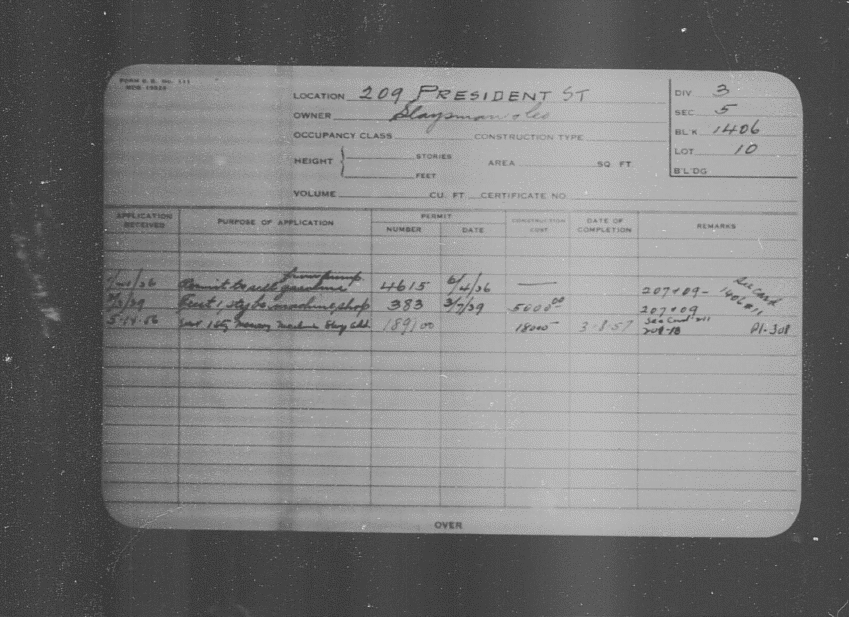 LOCATION 209 PRESIDENT ST
OWNER Slaysman
OCCUPANCY CLASS CONSTRUCTION TYPE
HEIGHT STORIES AREA SQ. FT.
FEET
VOLUME CU. FT. CERTIFICATE NO.
DIV 3
SEC 5
BL'K 1406
LOT 10
B'L'DG
APPLICATION RECEIVED PURPOSE OF APPLICATION PERMIT CONSTRUCTION COST DATE OF COMPLETION REMARKS
NUMBER DATE
from pump
Permit to sell gasoline 4615 6/4/36 — 207+09- See Card 1406#11
3/3/39 1 sty machine shop 383 3/7/39 5000.00 207+09
5-14-56 1 sty Masonry Machine Shop 18000 3-8-57 See Card #11
OVER